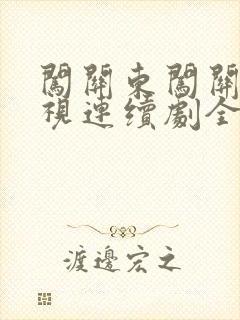 闖關東闖關
視連續劇全
渡邊宏之